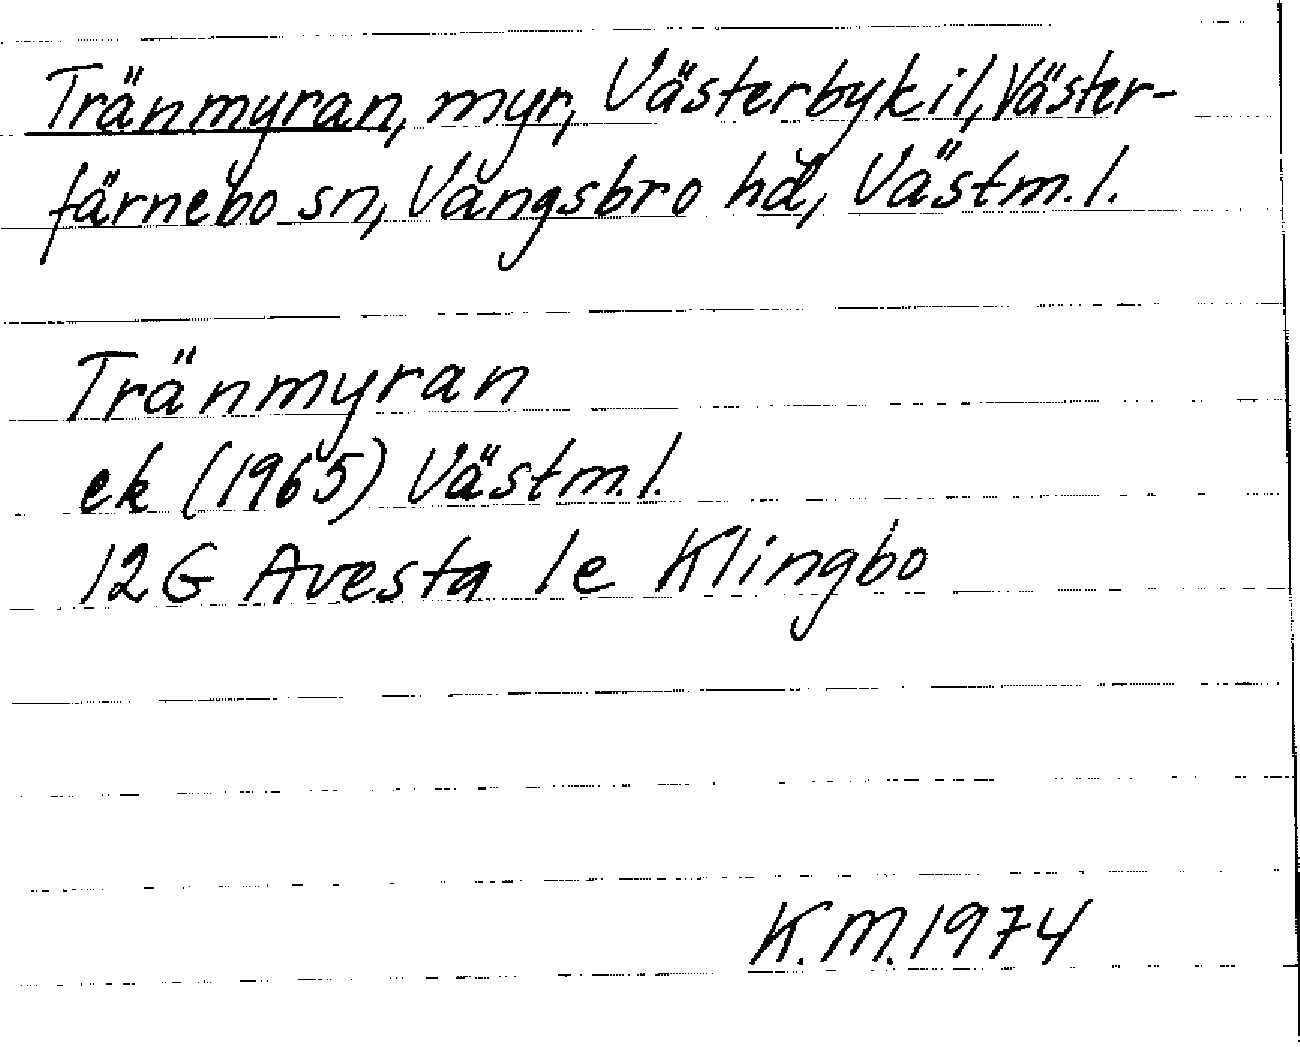 Tränmyran, myr, Västerbykil, Väster-
färnebo sn, Vangsbro hd, Västm.l.
Tränmyran
ek (1965) Västm.l.
12G Avesta 1e Klingbo
K.M.1974